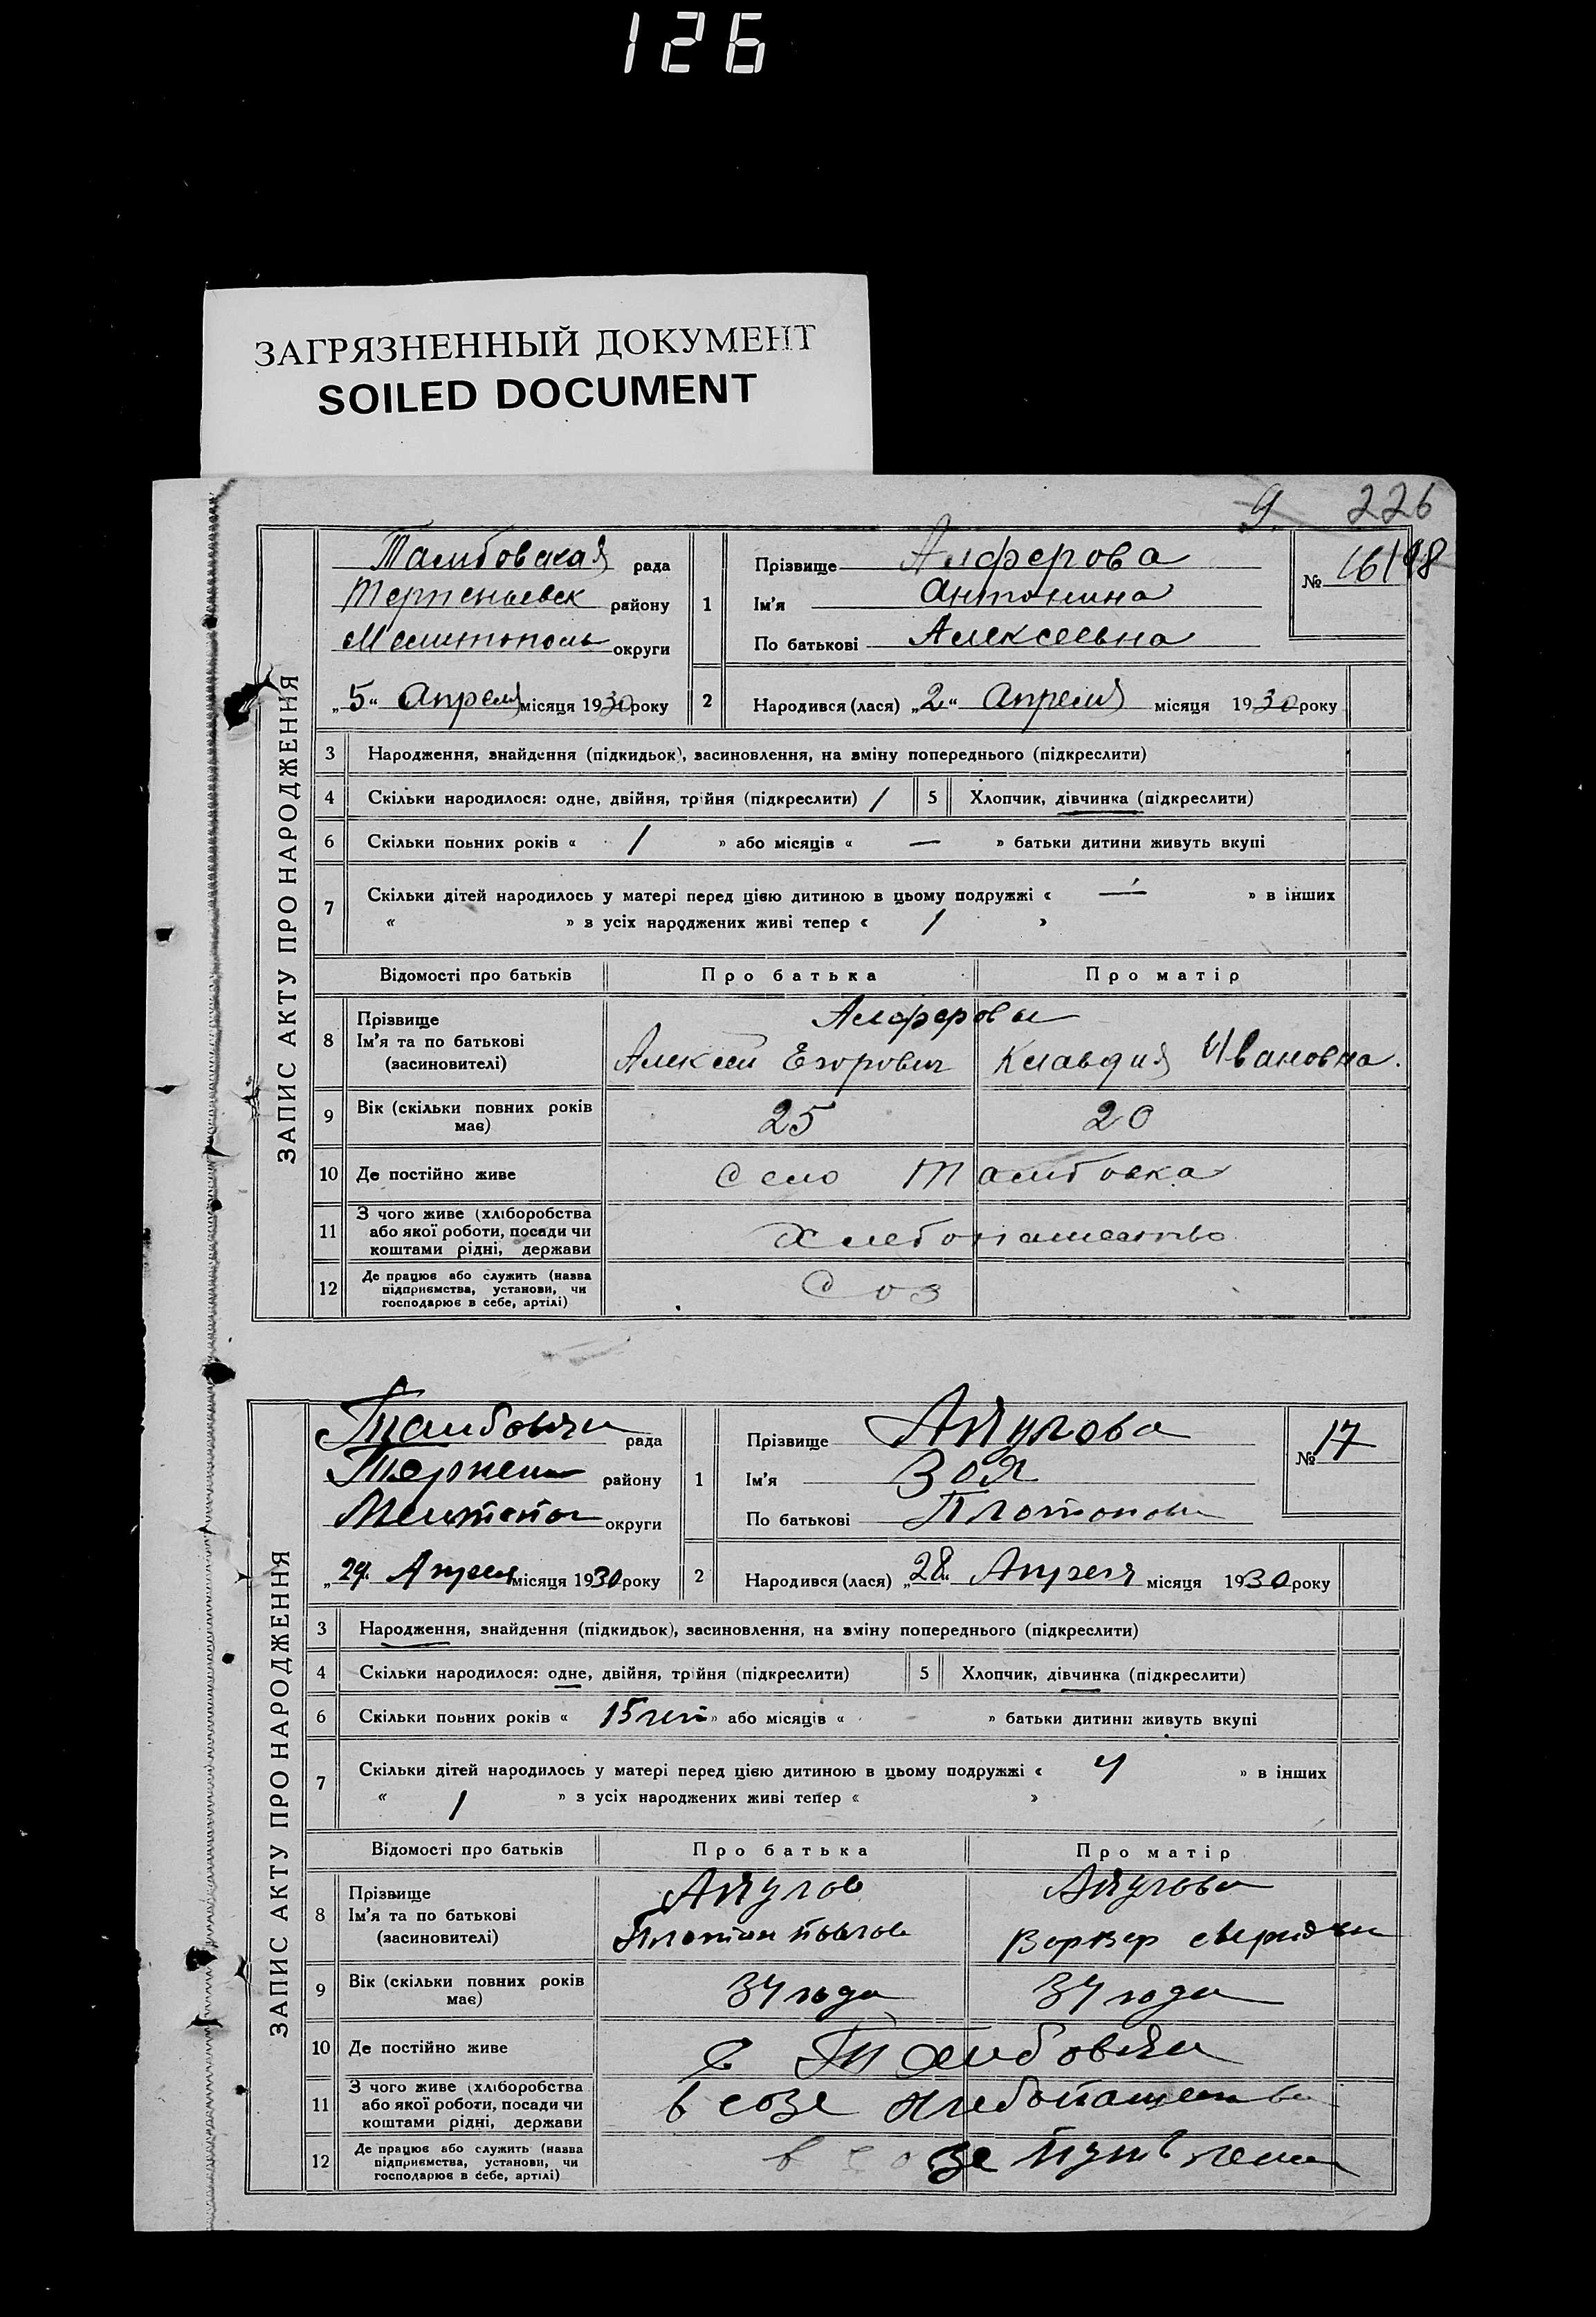 126
ЗАГРЯЗНЕННЫЙ ДОКУМЕНТ
SOILED DOCUMENT
9. 226
ЗАПИС АКТУ ПРО НАРОДЖЕННЯ
Тамбовская рада
Терпеньевск району
Мелитополь округи
„5“ Апреля місяця 1930 року
1 Прізвище Алферова
Ім’я Антонина
По батькові Алексеевна
№ 16/98
2 Народився (лася) „2“ Апреля місяця 1930 року
3 Народження, знайдення (підкидьок), засиновлення, на зміну попереднього (підкреслити)
4 Скільки народилося: одне, двійня, трійня (підкреслити) / 5 Хлопчик, дівчинка (підкреслити)
6 Скільки повних років « / » або місяців « — » батьки дитини живуть вкупі
7 Скільки дітей народилось у матері перед цією дитиною в цьому подружжі « — » в інших
« » з усіх народжених живі тепер « / »
Відомості про батьків Про батька Про матір
8 Прізвище Алферовы
Ім’я та по батькові Алексей Егорович Клавдия Ивановна.
(засиновителі)
9 Вік (скільки повних років має) 25 20
10 Де постійно живе Село Тамбовка
11 З чого живе (хліборобства або якої роботи, посади чи коштами рідні, держави Хлебопашество
12 Де працює або служить (назва підприємства, установи, чи господарює в себе, артілі) Соз
ЗАПИС АКТУ ПРО НАРОДЖЕННЯ
рада
району
округи
„29“ Апреля місяця 1930 року
1 Прізвище
Ім’я Зоя
По батькові
№ 17
2 Народився (лася) „28“ Апреля місяця 1930 року
3 Народження, знайдення (підкидьок), засиновлення, на зміну попереднього (підкреслити)
4 Скільки народилося: одне, двійня, трійня (підкреслити) 5 Хлопчик, дівчинка (підкреслити)
6 Скільки повних років « 15 лет » або місяців « » батьки дитини живуть вкупі
7 Скільки дітей народилось у матері перед цією дитиною в цьому подружжі « 4 » в інших
« 1 » з усіх народжених живі тепер « »
Відомості про батьків Про батька Про матір
8 Прізвище
Ім’я та по батькові
(засиновителі)
9 Вік (скільки повних років має) 34 года 34 года
10 Де постійно живе с Тамбовка
11 З чого живе (хліборобства або якої роботи, посади чи коштами рідні, держави в созе
12 Де працює або служить (назва підприємства, установи, чи господарює в себе, артілі) в созе